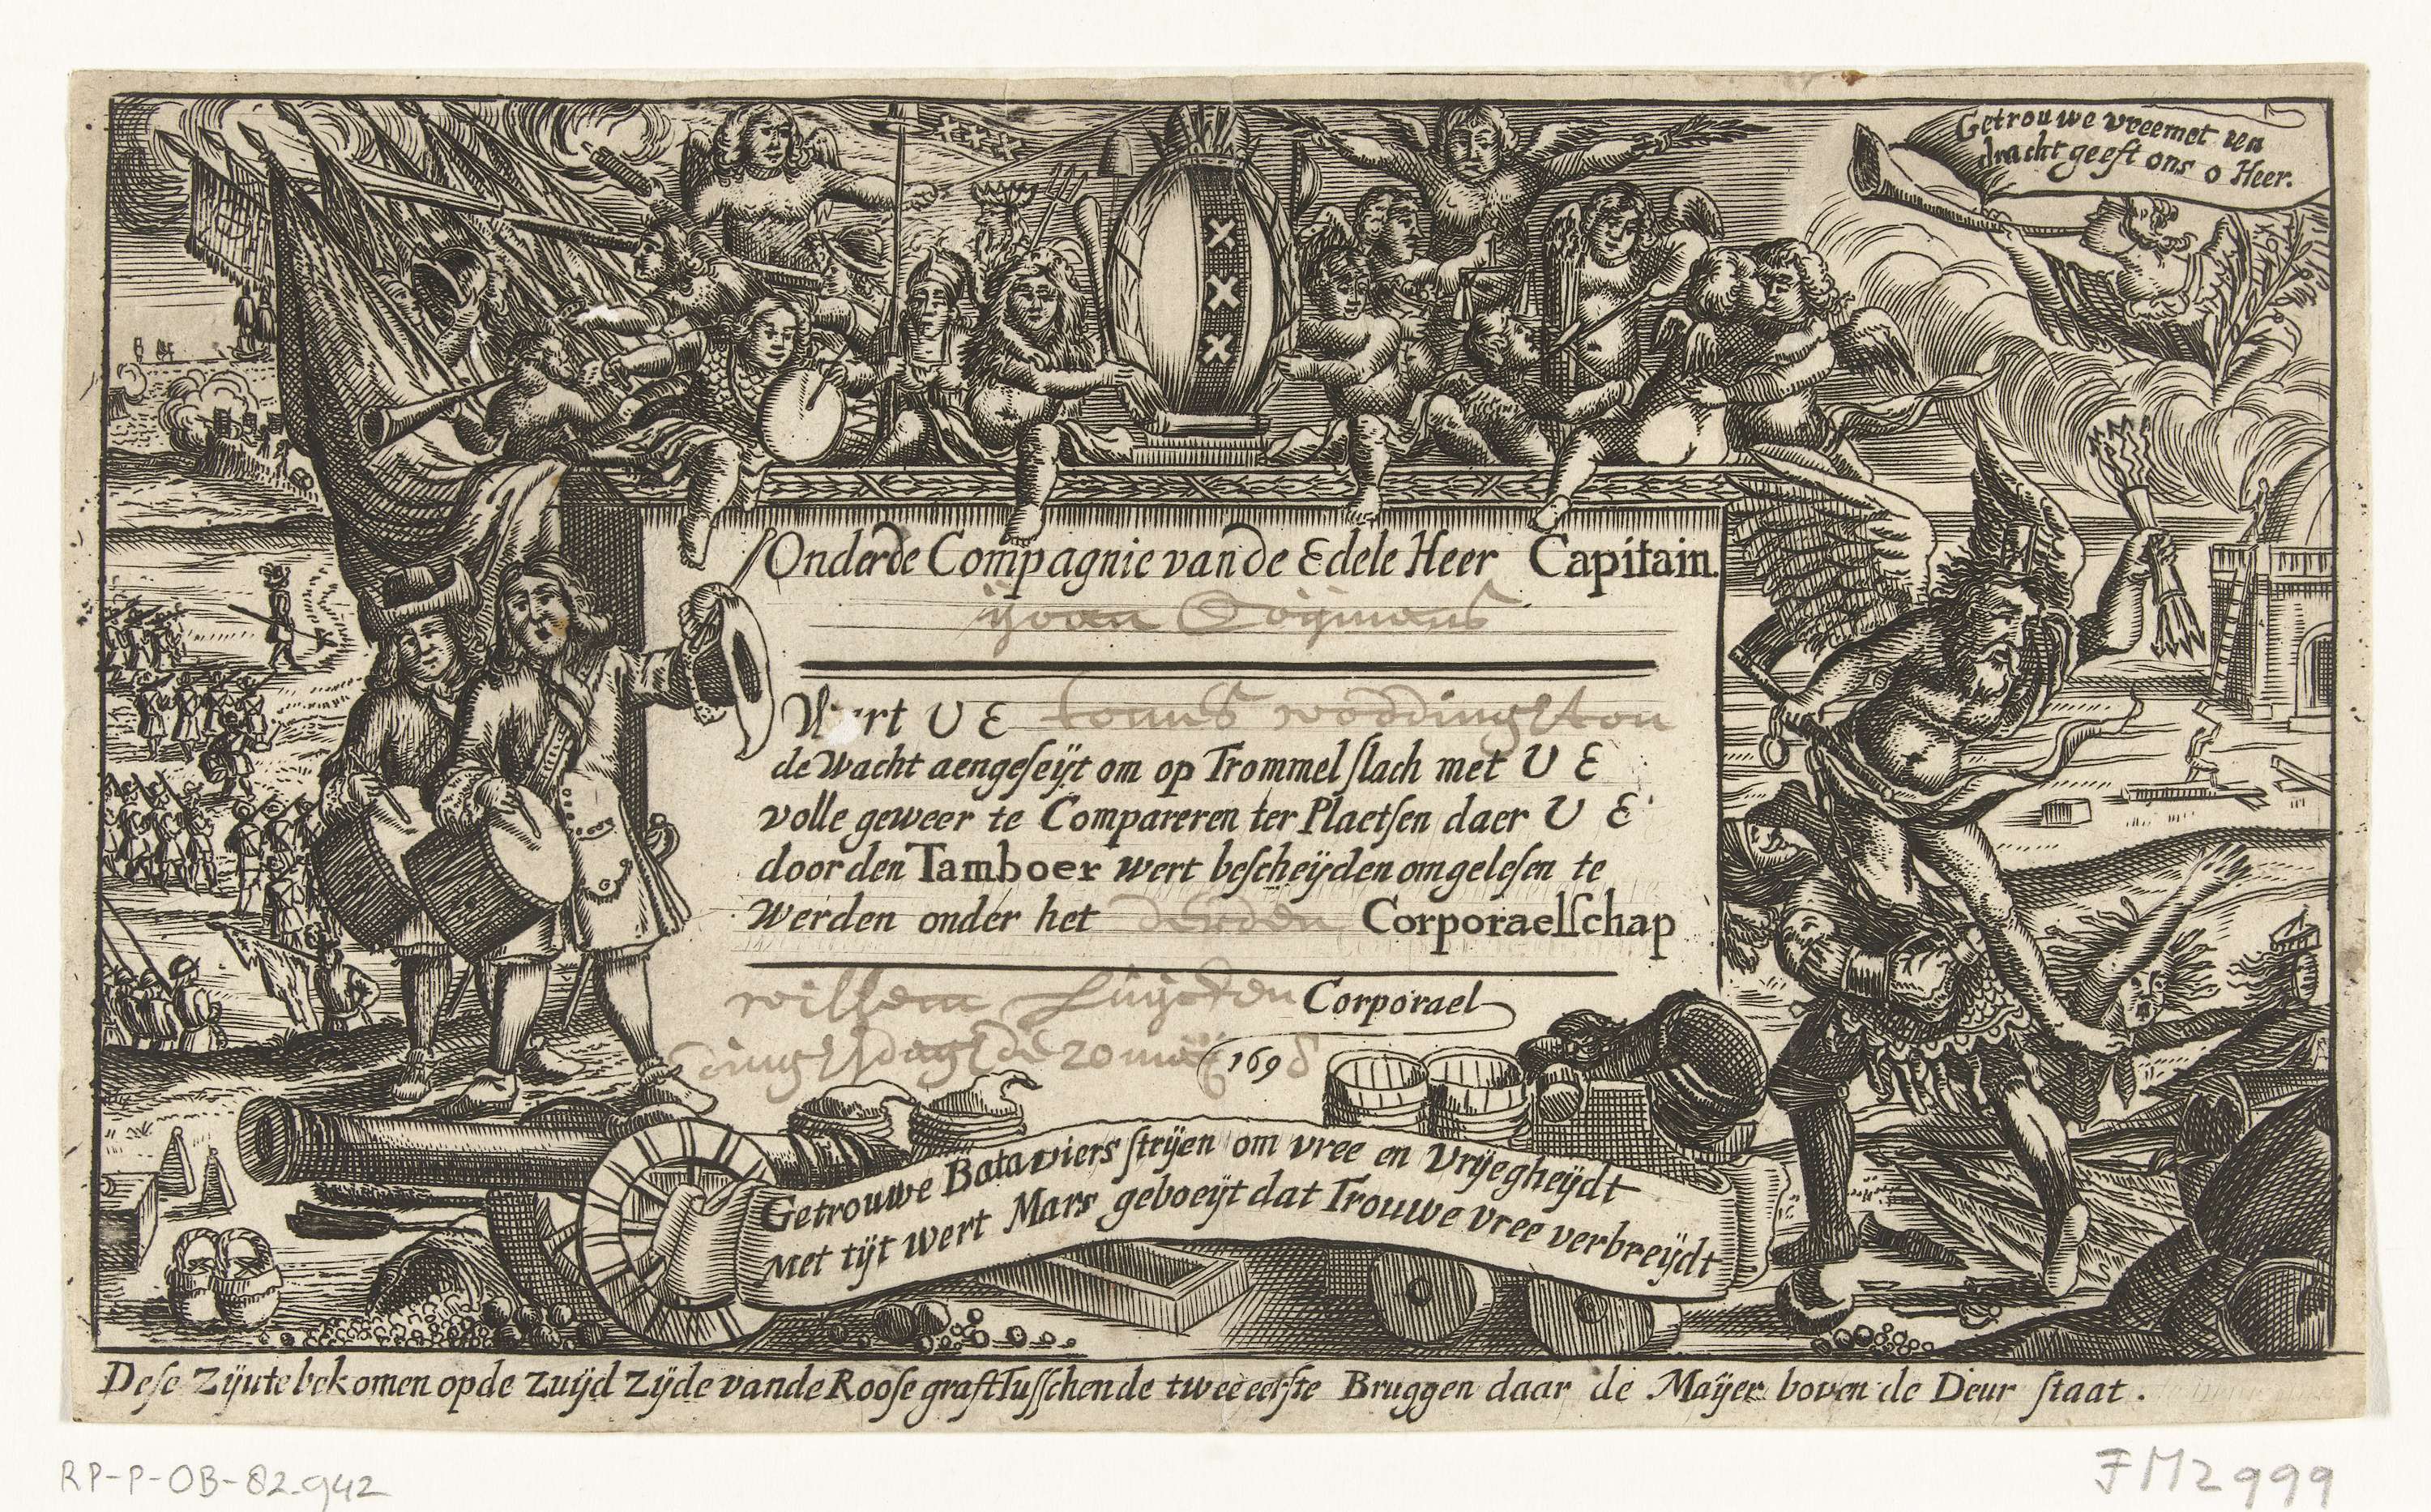 Getrouwe vreemet een
dracht geeft ons o Heer.
x
x
x
Onder de Compagnie van de Edele Heer Capitain.
Wert U E
de Wacht aengeſeijt om op Trommel ſlach met U E
volle geweer te Compareren ter Plaetſen daer U E
door den Tamboer wert beſcheijden om geleſen te
Werden onder het derden Corporaelſchap
willem Corporael
dingsdag de 20 1698
Getrouwe Bataviers ſtrijen om vree en Vrijegheijdt
Met tijt Wert Mars geboeijt dat Trouwe vree verbreijdt
Deſe Zijn te bekomen op de Zuijd Zijde van de Rooſe graft Tuſſchen de twee eerſte Bruggen daar de Maijer boven de Deur ſtaat.
RP-P-OB-82.942
FM2999